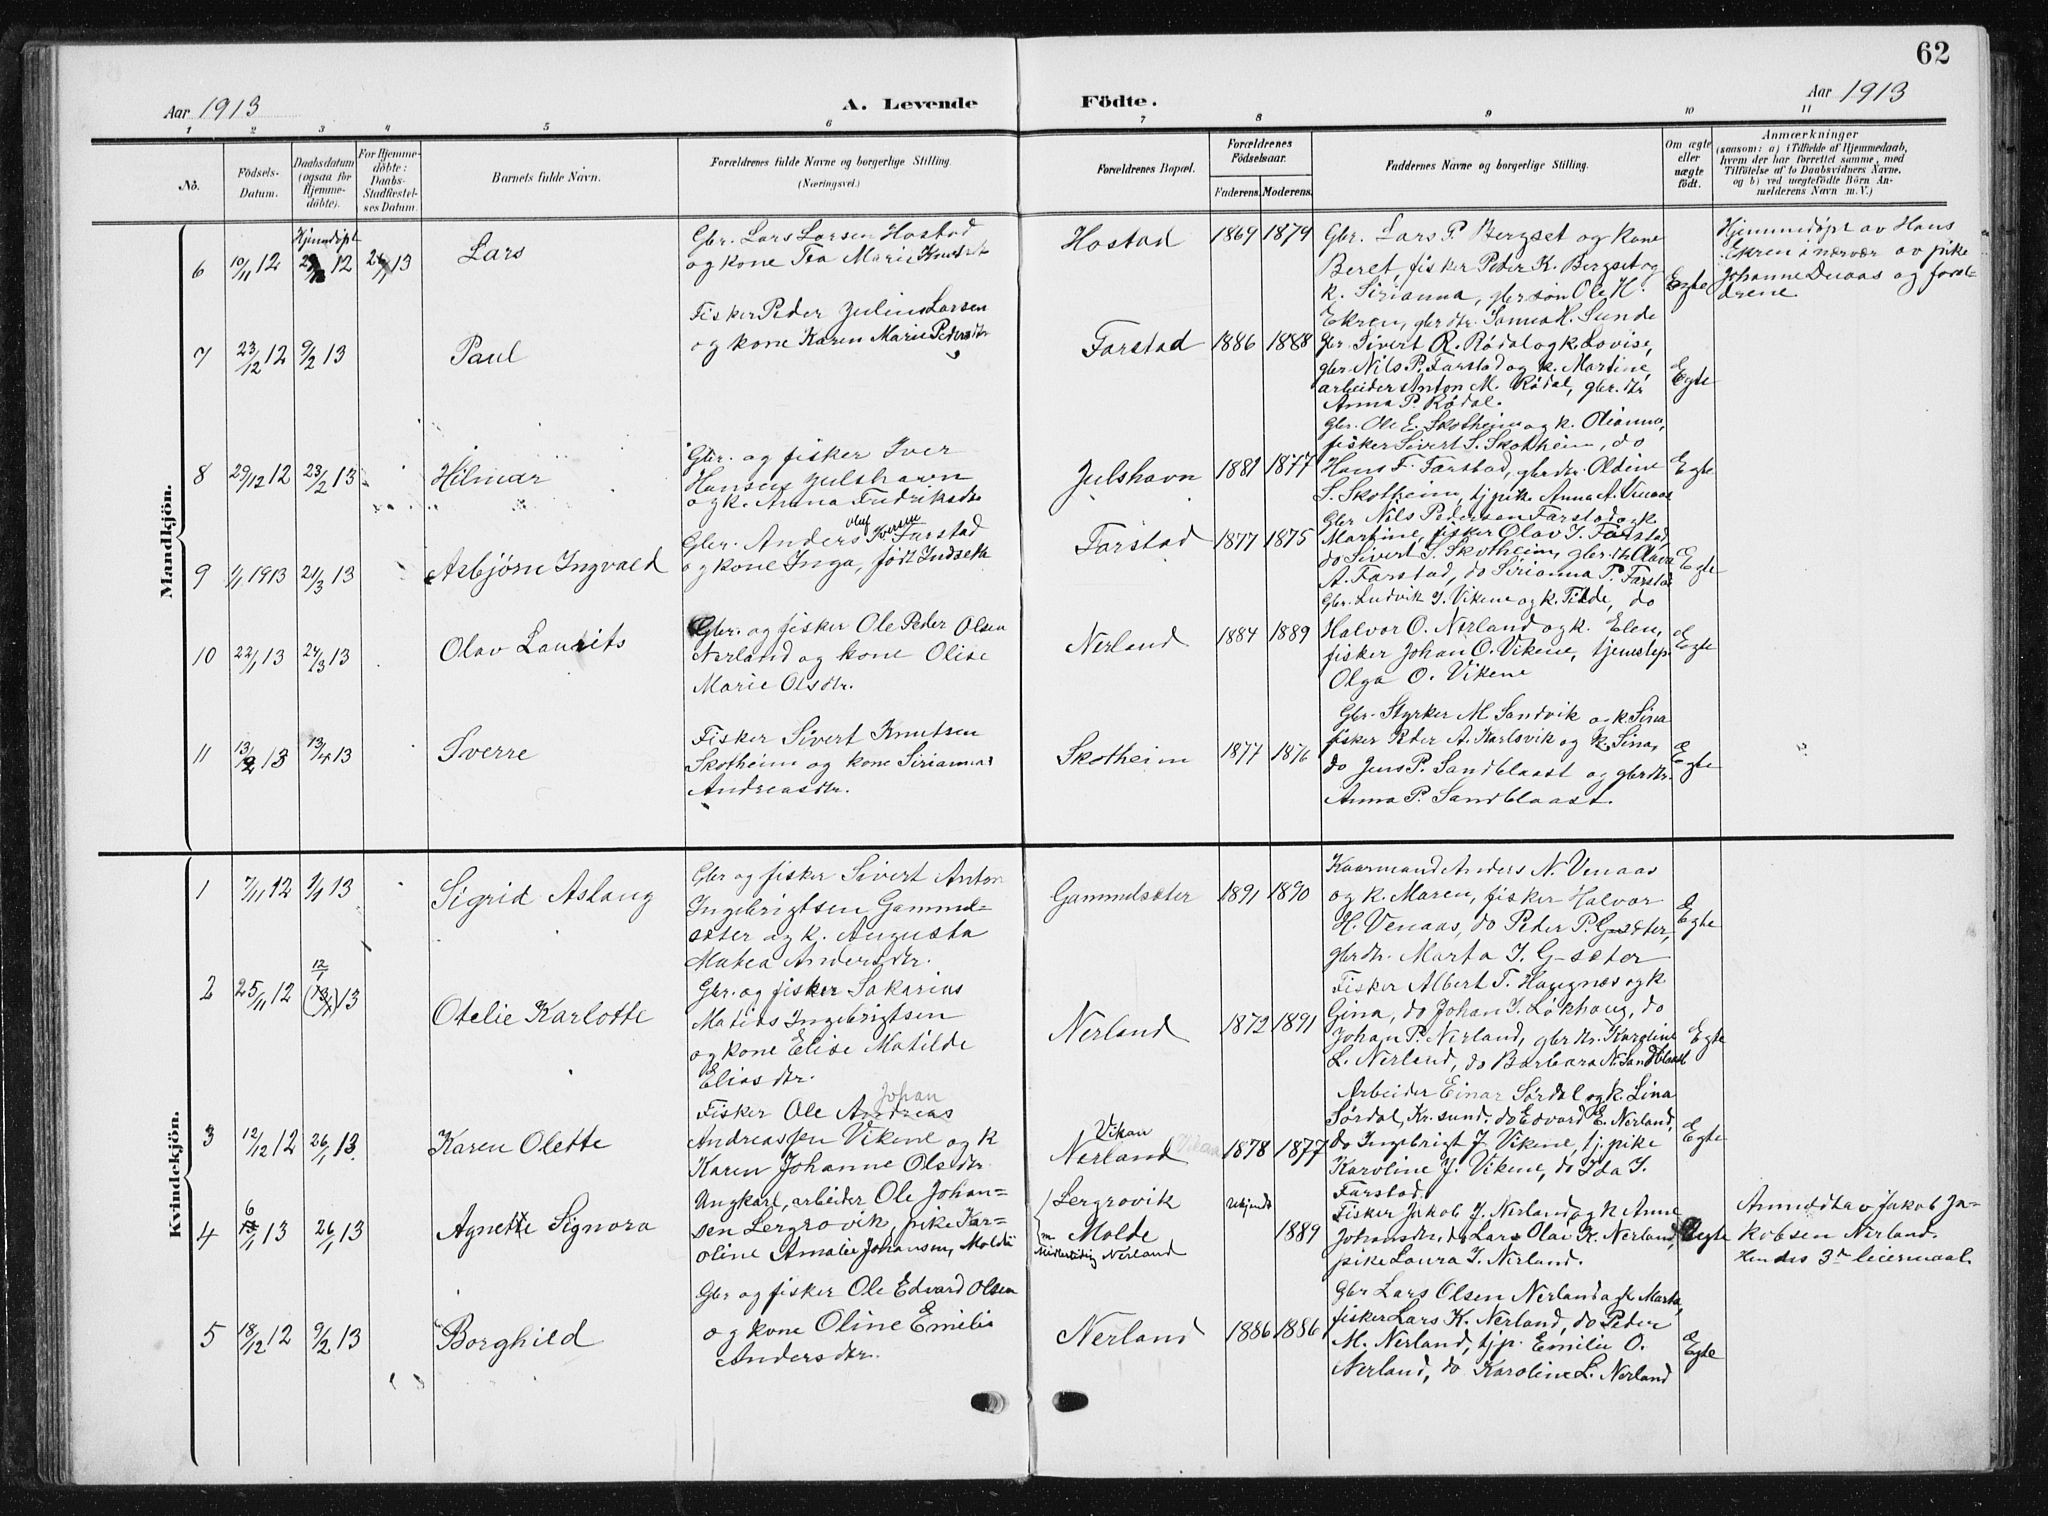 62
Aar 1913
A. Levende
Födte.
Aar 1913
1
2
3
4
5
6
7
8
9
10
11
No.
Födsels-
Datum.
Daabsdatum
(ogsaa for
Hjemme-
döbte).
For Hjemme-
döbte:
Daabs-
Stadfæstel-
ses Datum.
Barnets fulde Navn.
Forældrenes fulde Navne og borgerlige Stilling.
(Næringsvei.)
Forældrenes Bopæl.
Forældrenes
Födselsaar.
Faderens.
Moderens.
Faddernes Navne og borgerlige Stilling.
Om ægte
eller
uægte
födt.
Anmærkninger
(saasom: a) i Tilfælde af Hjemmedaab,
hvem der har forrettet samme, med
Tilföielse af to Daabsvidners Navne.
og b) ved uægtefödte Börn An-
melderens Navn m. V.)
Mandkjön.
6
10/11 12
Hjemdöpt
12
13
Lars
Gbr. Lars Larsen Hostad
og kone Tea Marie Knudsdtr
Hostad
1869
1879
Gbr. Lars P. Bergset og kone
Beret, fisker Peter K. Bergset og
k. Sirianna, gbr søn Ole H.
Ekren, gbr dtr. Sanna H. Sunde
Egte
Hjemmedöpt av Hans
Ekren i nærvær av pike
Johanne Duaas og foræl-
drene
7
23/12 12
9/2 13
Paul
Fisker Peder Julius Larsen
og kone Karen Marie Pedersdtr
Farstad
1886
1888
Gbr. Sivert R. Rödal og k. Lovise,
gbr. Nils P. Farstad og k. Martine,
arbeider Anton M. Rødal, gbr. dtr
Anna P. Rødal.
Egte
8
29/12 12
23/2 13
Hilmar
Gbr. og fisker Iver
Hansen Julshavn
og k. Anna Fredriksdtr
Julshavn
1881
1877
Gbr. Ole E. Skotheim og k. Olianna,
fisker Sivert S. Skotheim, do
Hans F. Farstad, gbr dtr. Oldine
S. Skotheim, tj pike Anna A. Venaas
Egte
9
1/1 1913
21/3 13
Asbjørn Ingvald
Gbr. Anders Olaf Iversen Farstad
og kone Inga, født Indseth
Farstad
1877
1875
Gbr Nils Pedersen Farstad og k
Martine, fisker Olav I. Farstad,
do Sivert S. Skotheim, gbr. dtr Olava
A. Farstad, do Sirianna P. Farstad
Egte
10
22/1 13
24/3 13
Olav Laurits
Gbr. og fisker Ole Peder Olsen
Nerland og kone Olise
Marie Olsdtr.
Nerland
1884
1889
Gbr. Ludvik J. Vikene og k. Tilde, do
Halvor O. Nerland og k. Elen,
fisker Johan O. Vikene, tjenstep.
Olga O. Vikene
Egte
11
13/2 13
13/4 13
Sverre
Fisker Sivert Knutsen
Skotheim og kone Sirianna
Andreasdtr.
Skotheim
1877
1876
Gbr. Styrker M. Sandvik og k. Sina
fisker Peder A. Karlsvik og k. Sina,
do Jens P. Sandblaast og gbr dtr.
Anna P. Sandblaast.
Egte
Kvindekjön.
1
7/11 12
1/1 13
Sigrid Aslaug
Gbr og fisker Sivert Anton
Ingebrigtsen Gammel-
seter og k. Augusta
Matea Andersdtr.
Gammelseter
1891
1890
Kaarmand Anders N. Venaas
og k. Maren, fisker Halvor
H. Venaas, do Peder P. G-seter,
gbr dtr. Marta I. G-seter
Egte
2
25/11 12
12/1
13
Otelie Karlotte
Gbr. og fisker Sakarias
Matias Ingebrigtsen
og kone Elise Matilde
Eliasdtr.
Nerland
1872
1891
Fisker Albert T. Haugnæs og k
Gina, do Johan I. Løkhaug, do
Johan P. Nerland, gbr dtr. Karoline
L. Nerland, do Barbara N. Sandblaast
Egte
3
12/12 12
26/1 13
Karen Olette
Johan
Fisker Ole Andreas
Andreassen Vikene og k
Karen Johanne Olsdtr.
Vikan
Nerland
1878
1877
Arbeider Einar Sørdal og k. Lina
Sørdal, Kr.sund, do Edvard E. Nerland,
do Ingebrigt J Vikene, tj. pike
Karoline J. Vikene, do Ida I.
Farstad.
Egte
4
6
13
26/1 13
Agnete Signora
Ungkarl, arbeider Ole Johan-
sen Lergrovik, pike Kar-
oline Amalie Johansen, Molde
Lergrovik
Molde
midlertidig Nerland
Ukjendt
1889
Fisker Jakob J. Nerland og k Anne
Johansdtr, do Lars Olai K. Nerland,
pike Laura J. Nerland.
Uegte
Anmeldt av Jakob Ja-
kobsen Nerland.
Hendes 3dr leiermaal
5
18/12 12
9/2 13
Borghild
Gbr og fisker Ole Edvard Olsen
og kone Oline Emilie
Andersdtr.
Nerland
1886
1886
Gbr Lars Olsen Nerland og k Marta,
fisker Lars K. Nerland, do Peder
M. Nerland, tjp. Emilie O.
Nerland, do Karoline L. Nerland
Egte